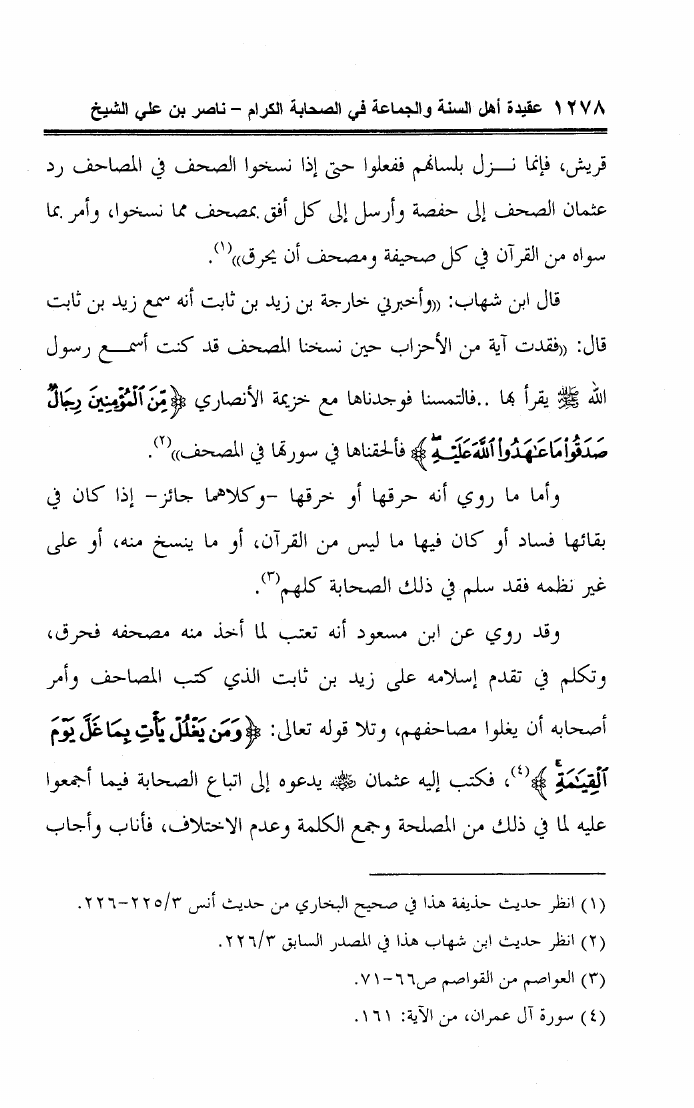 ١٢٧٨ عقيدة أهل السنة والجماعة في الصحابة الكرام – ناصر بن علي الشيخ
قريش، فإنما نـــزل بلسانهم ففعلوا حتى إذا نسخوا الصحف في المصاحف رد
عثمان الصحف إلى حفصة وأرسل إلى كل أفق بمصحف مما نسخوا، وأمر بما
سواه من القرآن في كل صحيفة ومصحف أن يحرق»(١).
قال ابن شهاب: «وأخبرني خارجة بن زيد بن ثابت أنه سمع زيد بن ثابت
قال: «فقدت آية من الأحزاب حين نسخنا المصحف قد كنت أسمـــع رسول
الله ﷺ يقرأ بها ..فالتمسنا فوجدناها مع خزيمة الأنصاري ﴿مِّنَ ٱلْمُؤْمِنِينَ رِجَالٌ
صَدَقُواْ مَا عَـٰهَدُواْ ٱللَّهَ عَلَيْهِ﴾ فألحقناها في سورتها في المصحف»(٢).
وأما ما روي أنه حرقها أو خرقها –وكلاهما جائز– إذا كان في
بقائها فساد أو كان فيها ما ليس من القرآن، أو ما ينسخ منه، أو على
غير نظمه فقد سلم في ذلك الصحابة كلهم(٣).
وقد روي عن ابن مسعود أنه تعتب لما أخذ منه مصحفه فحرق،
وتكلم في تقدم إسلامه على زيد بن ثابت الذي كتب المصاحف وأمر
أصحابه أن يغلوا مصاحفهم، وتلا قوله تعالى: ﴿وَمَن يَغْلُلْ يَأْتِ بِمَا غَلَّ يَوْمَ
ٱلْقِيَـٰمَةِ﴾(٤)، فكتب إليه عثمان ﵁ يدعوه إلى اتباع الصحابة فيما أجمعوا
عليه لما في ذلك من المصلحة وجمع الكلمة وعدم الاختلاف، فأناب وأجاب
(١) انظر حديث حذيفة هذا في صحيح البخاري من حديث أنس ٢٢٥/٣-٢٢٦.
(٢) انظر حديث ابن شهاب هذا في المصدر السابق ٢٢٦/٣.
(٣) العواصم من القواصم ص٦٦-٧١.
(٤) سورة آل عمران، من الآية: ١٦١.